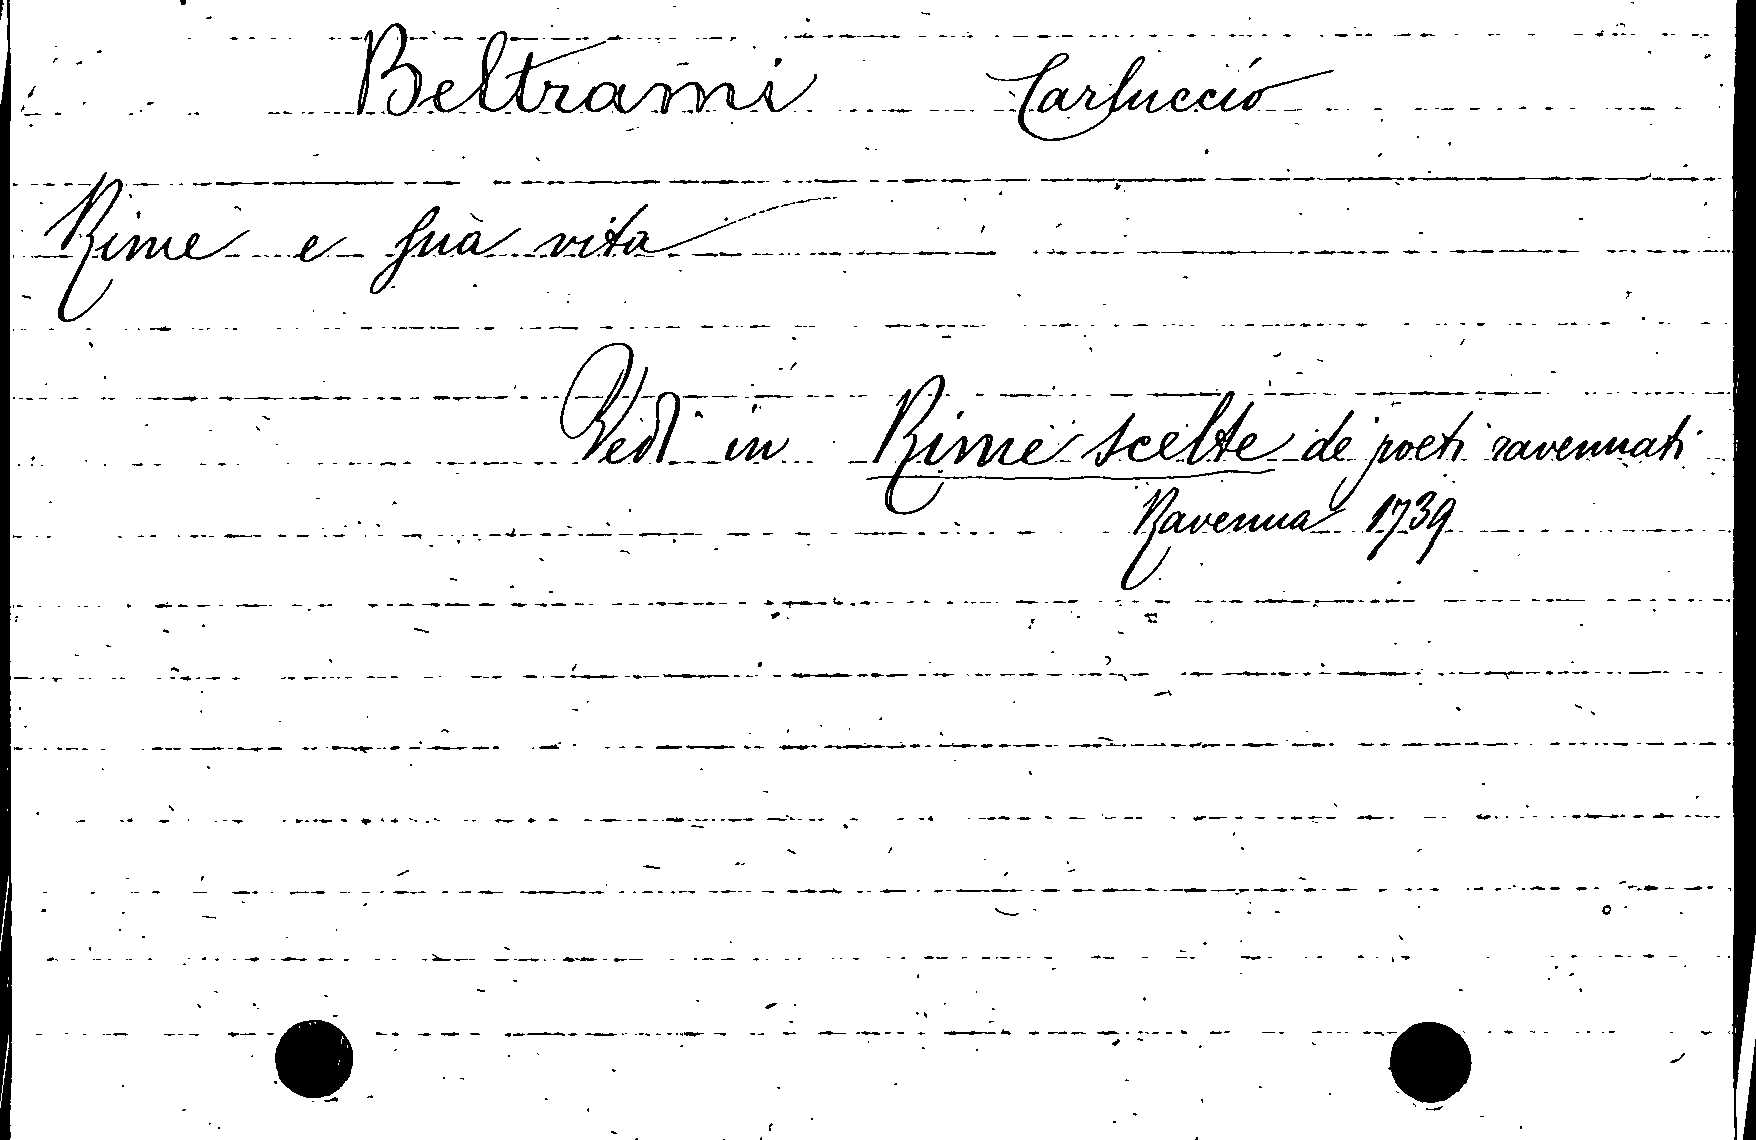 Beltrami Carluccio
Rime e sua vita
Vedi in Rime scelte de poeti ravennati
Ravenna 1739